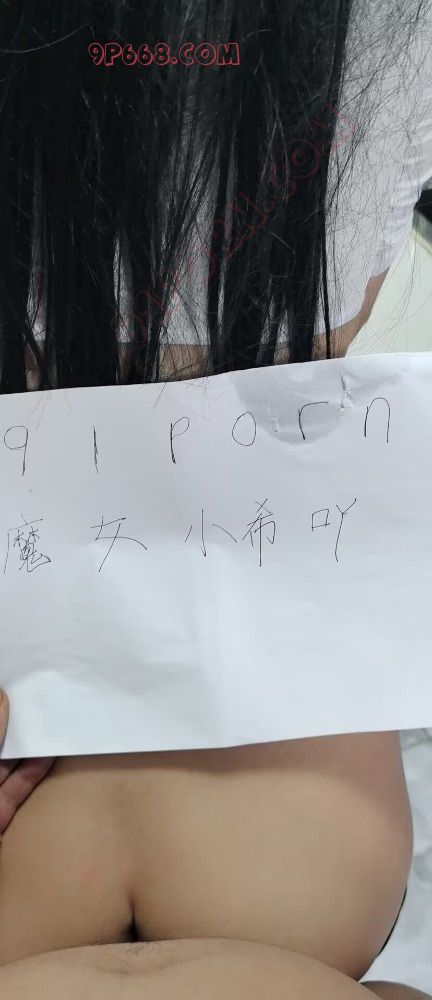 9P668.COM
91porn
魔女小希吖